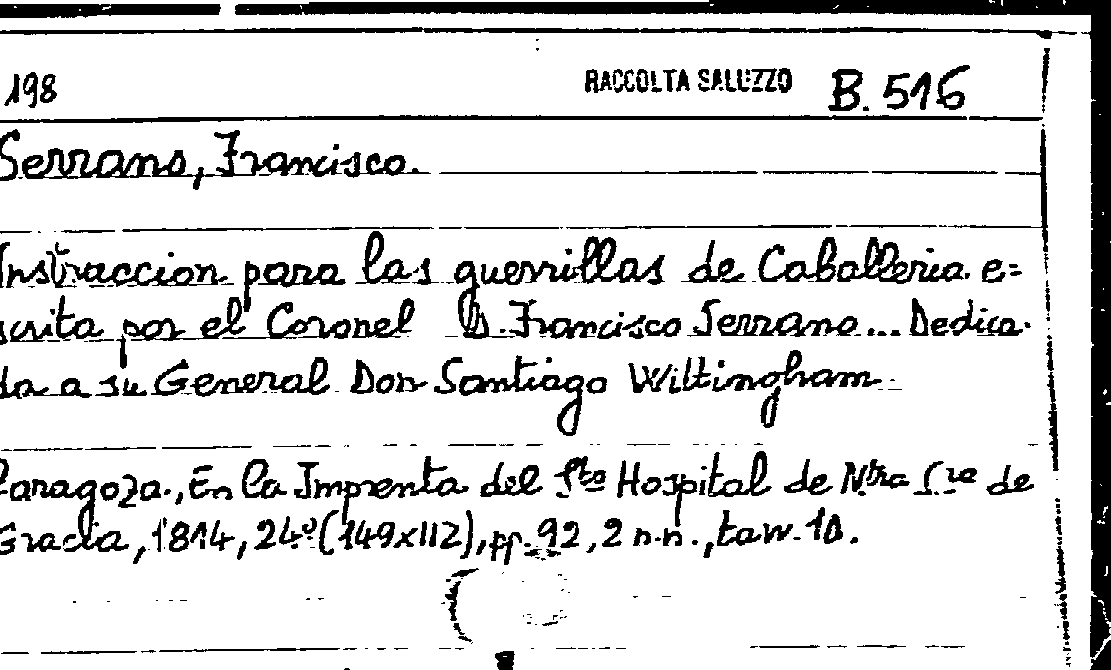 198 RACCOLTA SALUZZO B. 516
Serrano, Francisco.
Instruccion para las guerrillas de Caballeria e=
scrita por el Coronel D. Francisco Serrano... Dedica.
da a su General Don Santiago Wiltingham.
Zaragoza., En la Imprenta del Sto Hospital de Ntra Sra de
Gracia, 1814, 24º (149x112), pp. 92, 2 n.n., tav. 10.